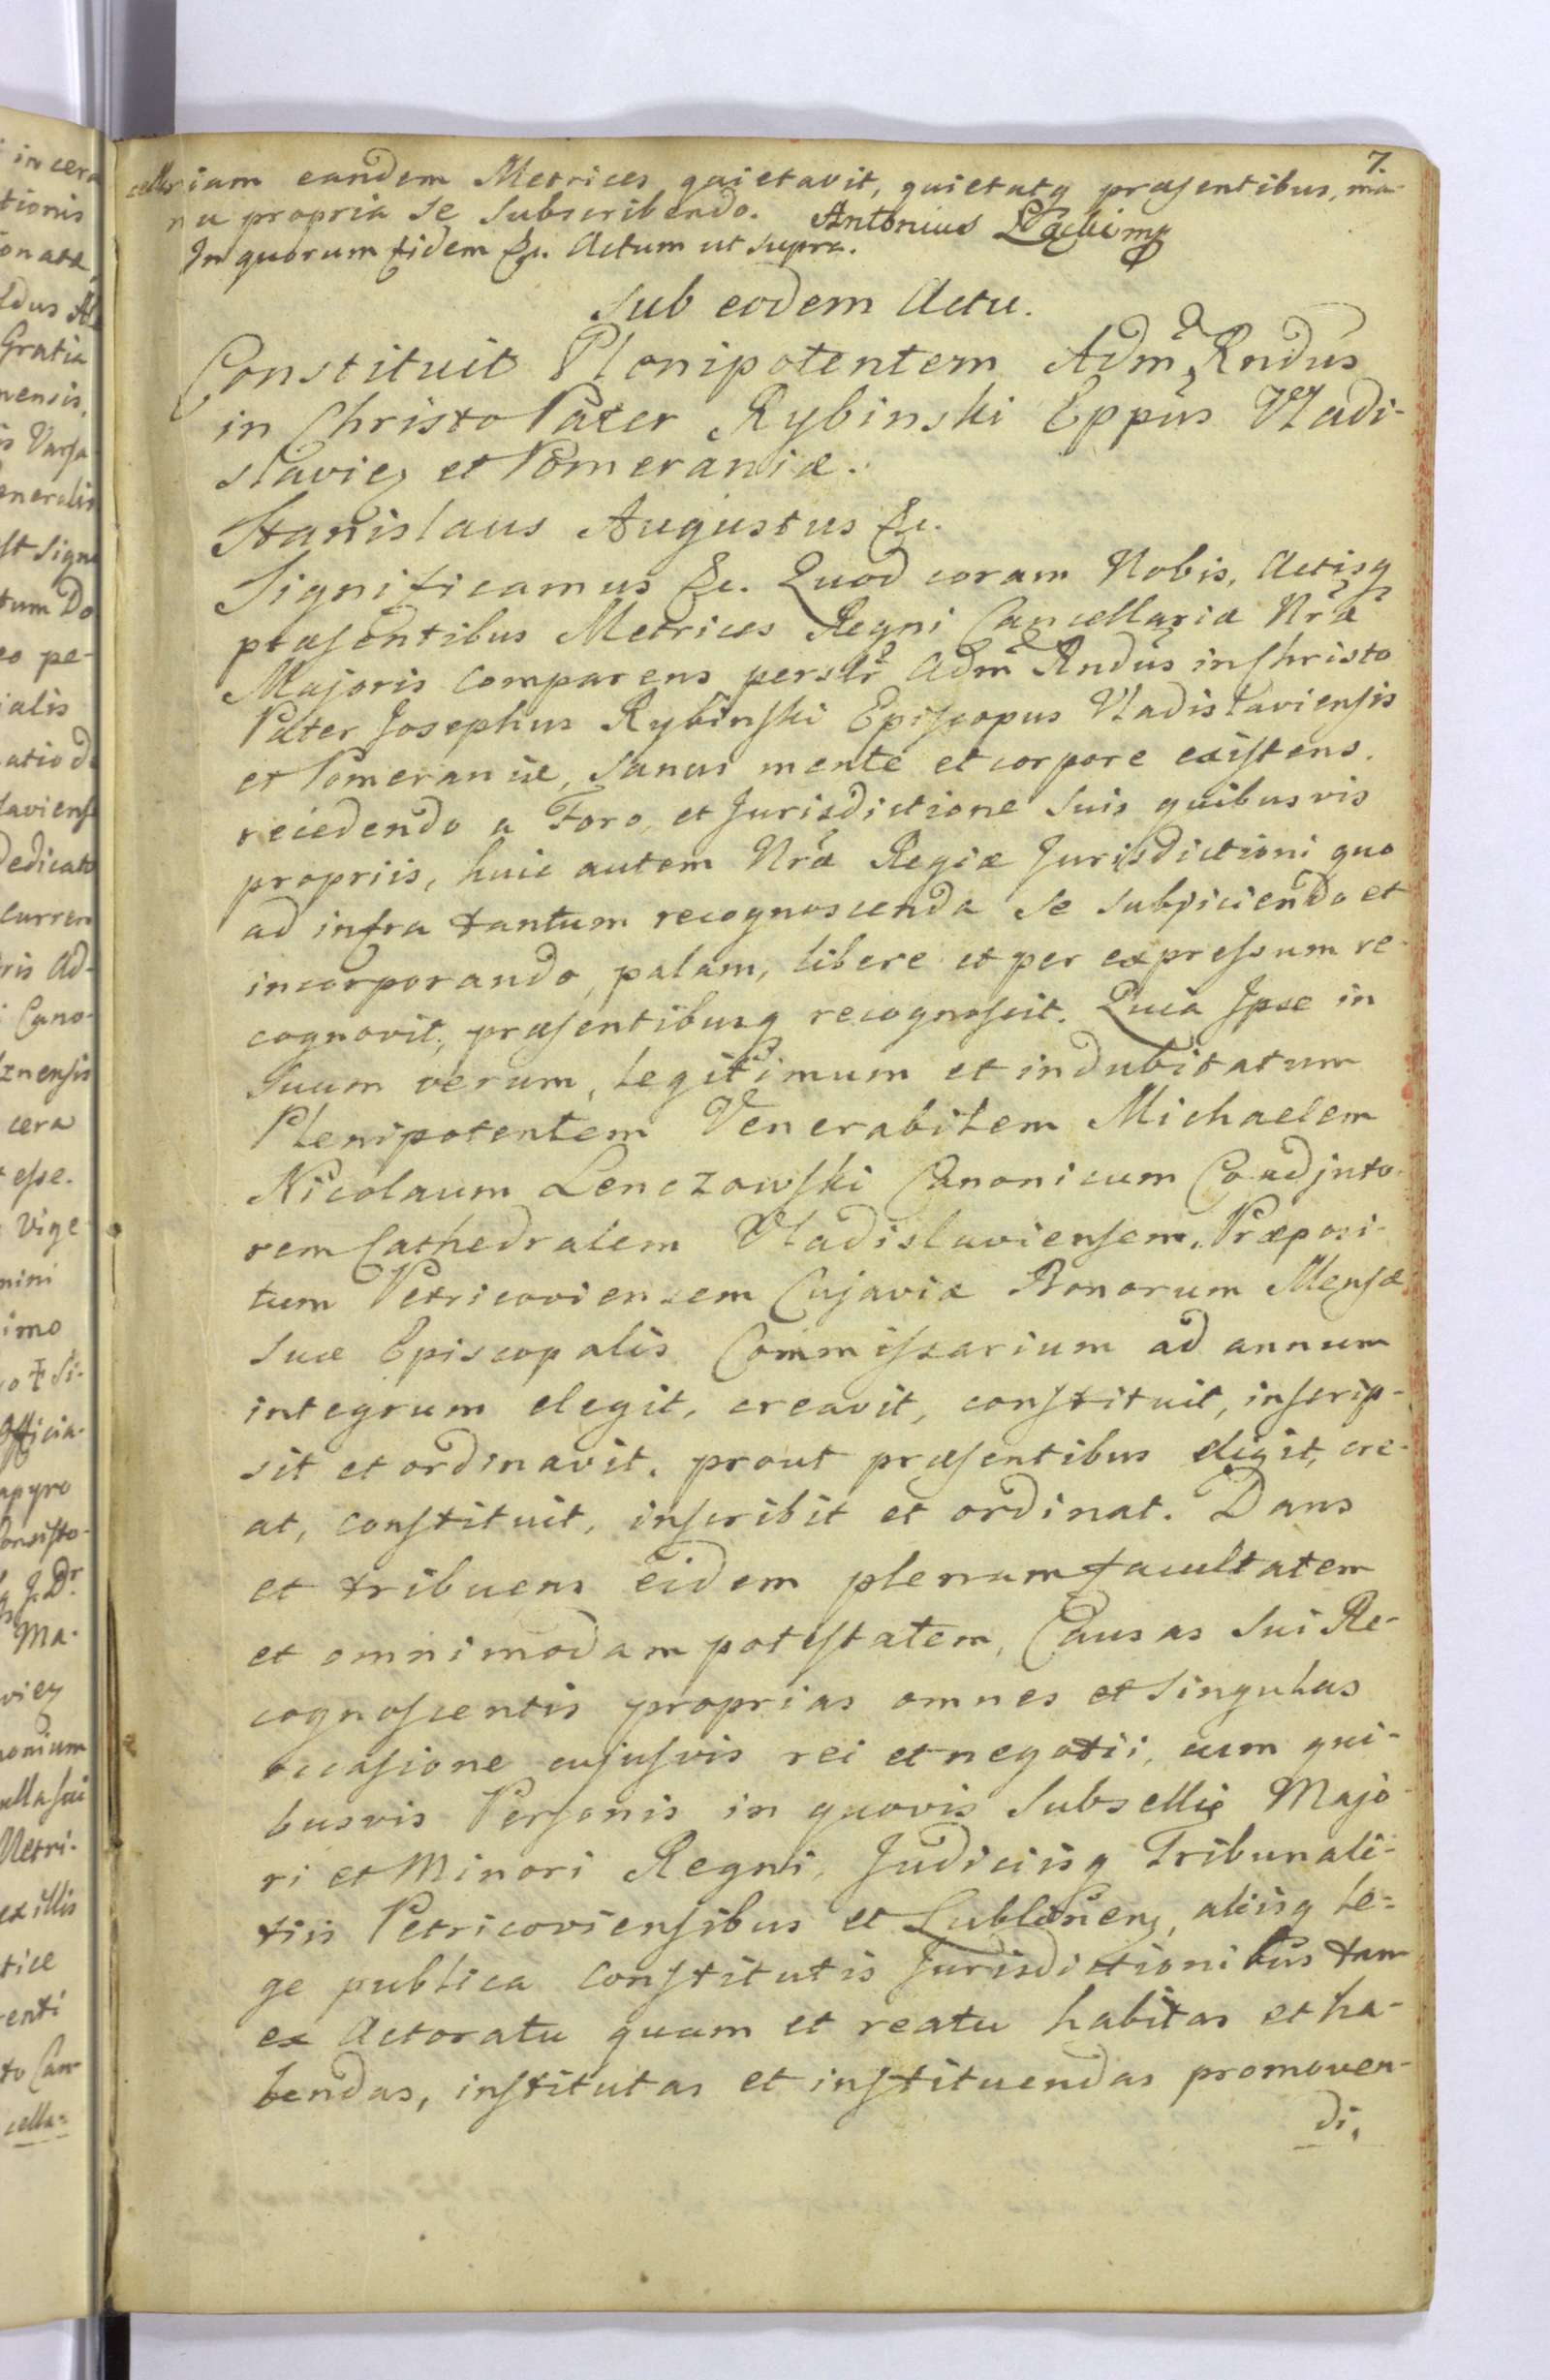 7.
cellariam eandem Metrices quietavit, quietatq præsentibus, ma-
nu propria se subscribendo. Antonius Łącki mp
In quorum fidem &c. Actum ut supra.
Sub eodem Actu.
Constituit Plenipotentem Adm Rndus
in Christo Pater Rybinski Eppus Vladi-
slavien et Pomeraniæ.
Stanislaus Augustus &c.
Significamus &c. Quod coram Nobis, Actisq
præsentibus Metrices Regni Cancellariæ Nræ
Majoris comparens perslr Adm Rndus in Christo
Pater Josephus Rybinski Episcopus Vladislaviensis
et Pomeraniæ, sanus mente et corpore existens.
recedendo a Foro et Jurisdictione suis quibusvis
propriis, huic autem Nræ Regiæ Jurisdictioni quo
ad infra tantum recognoscenda se subjiciendo et
incorporando, palam, libere et per expressum re-
cognovit, præsentibusq recognoscit. Quia Ipse in
suum verum, legitimum et indubitatum
Plenipotentem Venerabilem Michaelem
Nicolaum Lenczowski Canonicum Coadjuto-
rem Cathedralem Vladislaviensem, Præposi-
tum Petricoviensem Cujaviæ Bonorum Mensæ
suæ Episcopalis Commissarium ad annum
integrum elegit, creavit, constituit, inscrip-
sit et ordinavit, prout præsentibus eligit, cre-
at, constituit, inscribit et ordinat. Dans
et tribuens eidem plenam facultatem
et omnimodam potestatem, Causas sui Re-
cognoscentis proprias omnes et singulas
occasione cujusvis rei et negotii, cum qui-
busvis Personis in quovis Subsellio Majo-
ri et Minori Regni, Judiciisq Tribunali-
tiis Petricoviensibus et Lublinen, aliisq le-
ge publica constitutis Jurisdictionibus tam
ex Actoratu quam et reatu habitas et ha-
bendas, institutas et instituendas promoven-
di,